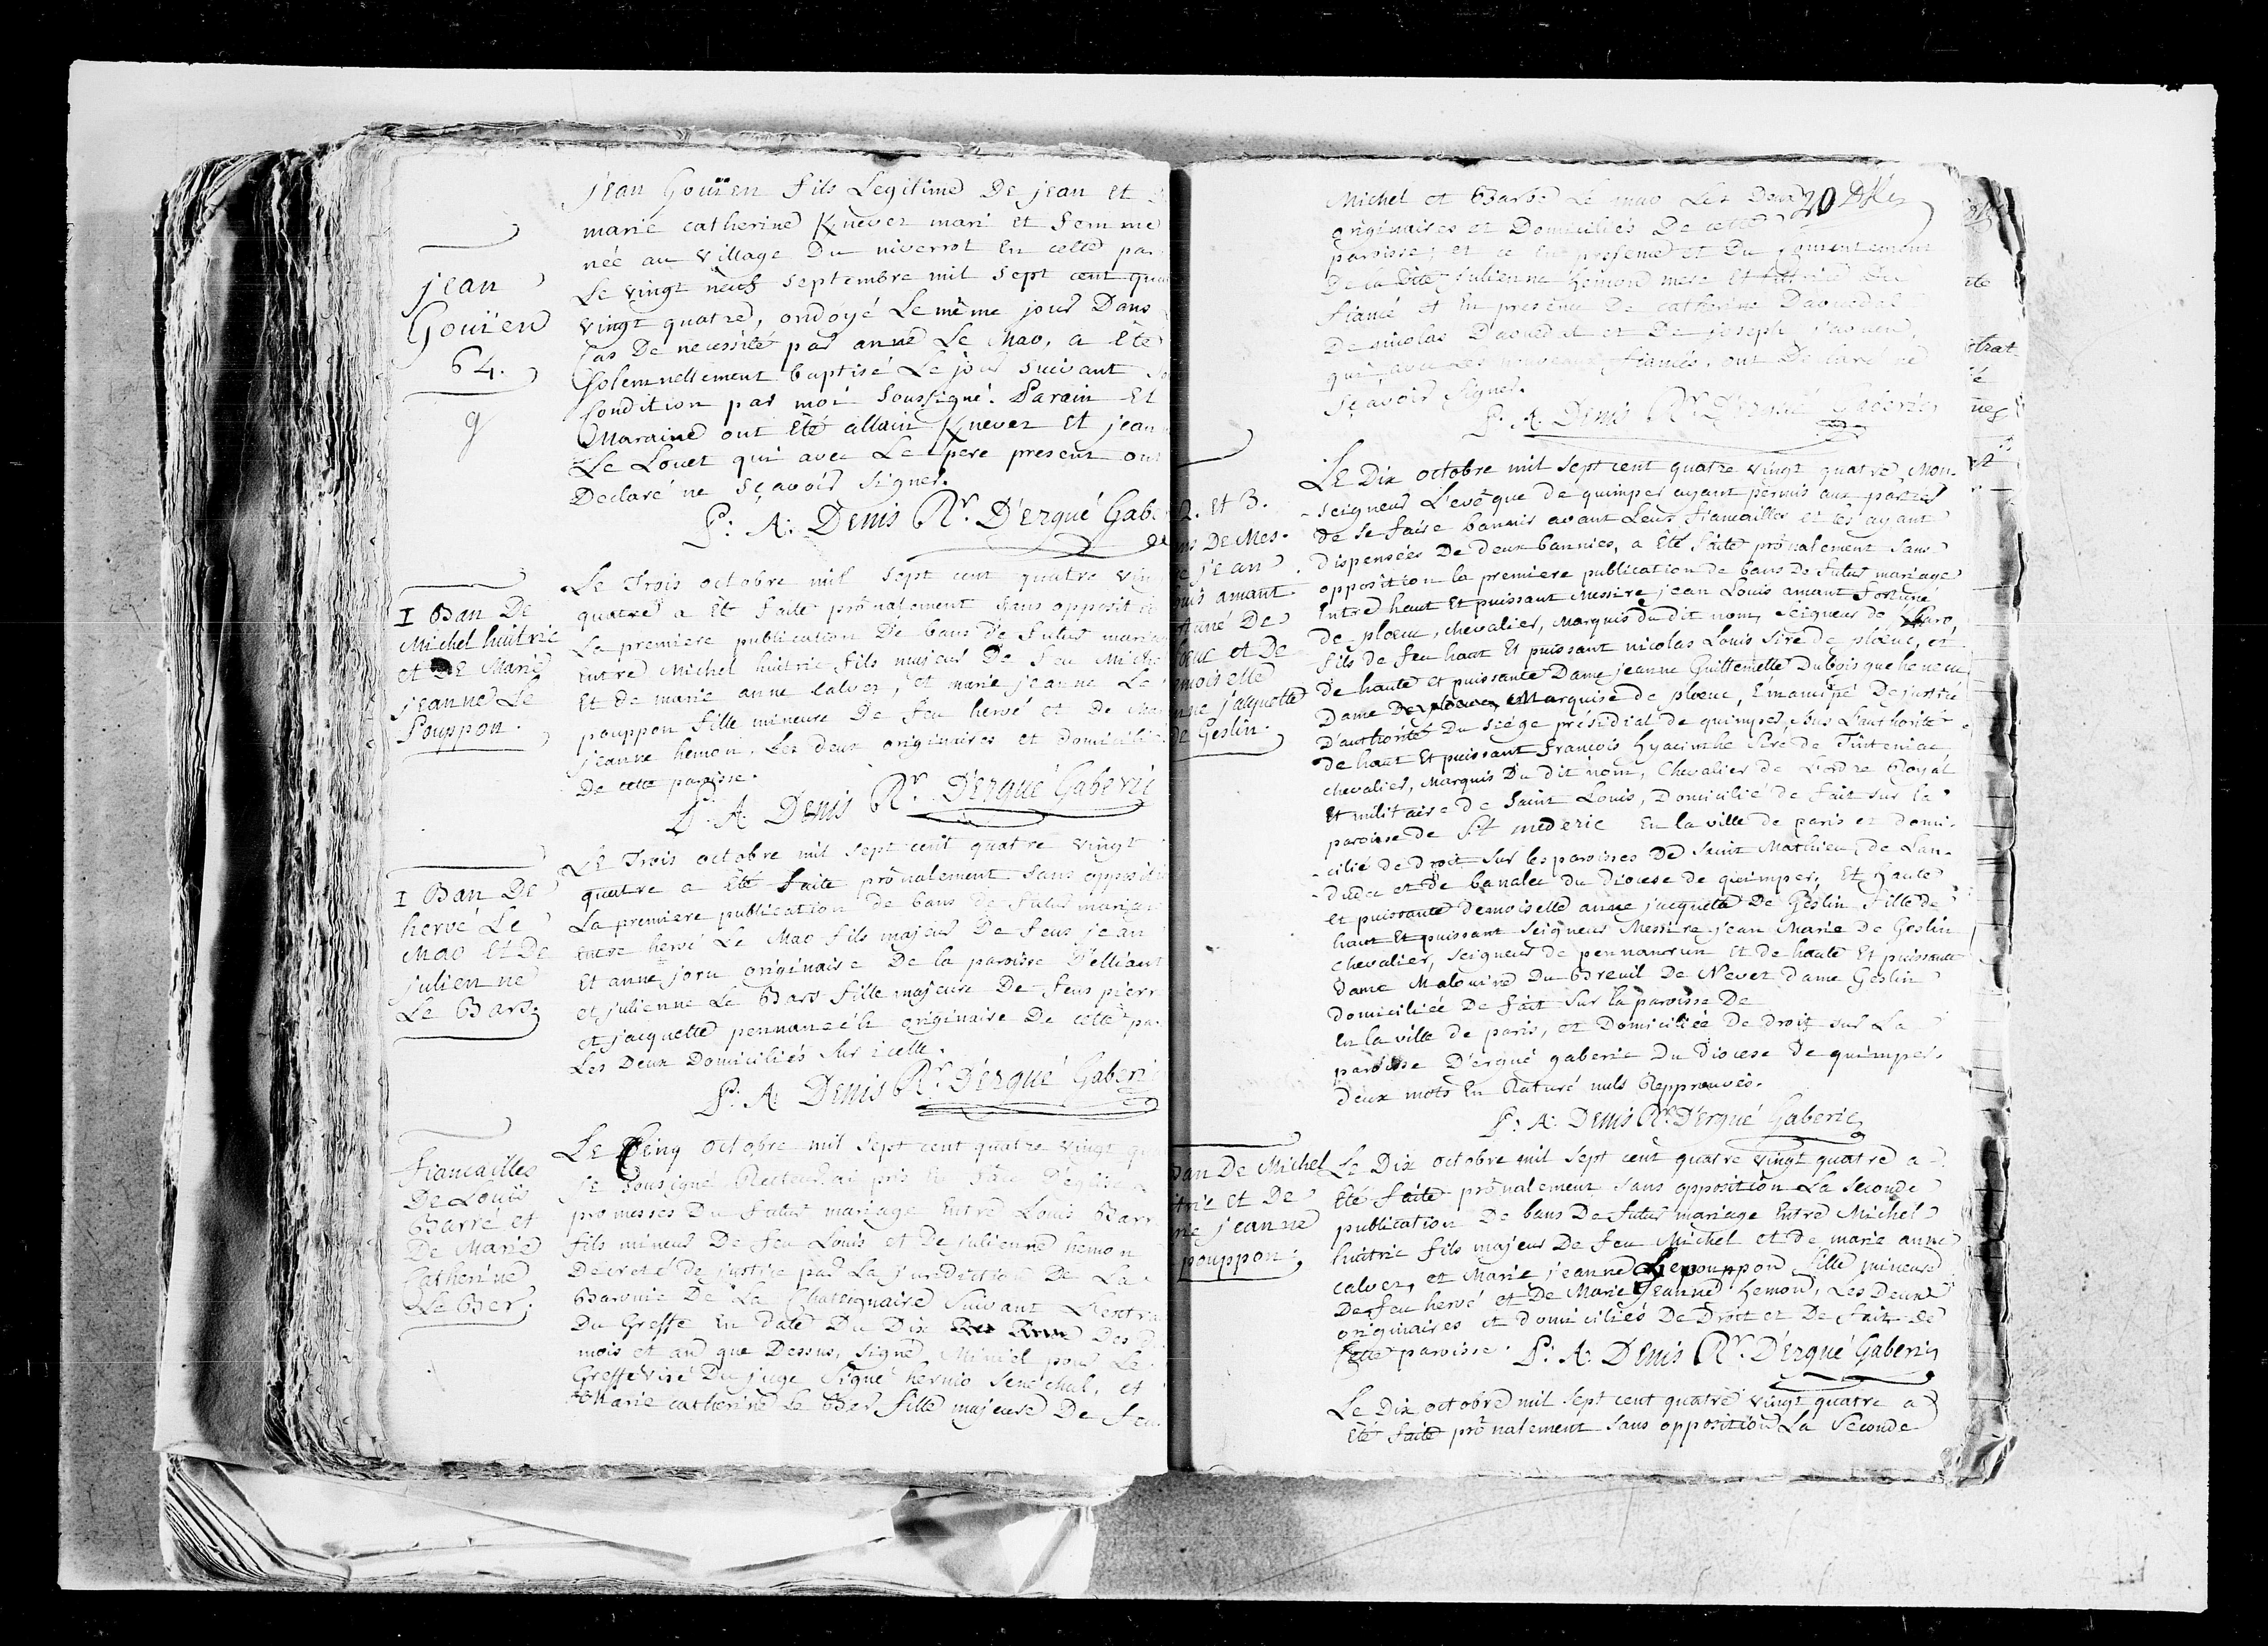 jean
Gouïen
64.
g
jean Gouïen fils Legitime De jean et
marie catherine Knevez mari et femme
née au village Du niverrot En cette par
Le vingt neuf septembre mil sept cent qua
vingt quatre, ondoyé Le même jour Dans
cas De necessité par anne Le Mao, a Eté
solemnellement baptisé Le jour suivant
Condition par moi soussigné. Parain Et
Maraine ont Eté allain Knevez Et jean
Le Louet qui avec Le pere present ont
Declaré ne sçavoir signer.
P. A. Denis Rr. D'Ergué Gabe
I Ban De
Michel huitric
et De Marie
jeanne Le
Pouppon.
Le Trois octobre mil sept cent quatre vin
quatre a Eté faite prônalement sans opposit
La premiere publication De bans de futur maria
Entre Michel huitric fils majeur De feu Miche
Et de marie anne calvez, et marie jeanne Le
pouppon fille mineure De feu hervé et De ma
jeanne hemon. Les deux originaires et domicili
De cette paroisse.
P. A. Denis Rr. D'Ergué Gaberic
I Ban De
hervé Le
Mao Et De
julienne
Le Bars.
Le Trois octobre mil sept cent quatre vingt
quatre a Eté faite prônalement sans oppositi
La premiere publication de bans de futur mariage
Entre hervé Le Mao fils majeur De feus jean
Et anne joru originaire De la paroisse D'Elliant
et julienne Le Bars fille majeure De feus pierr
et jacquette pennanzéch originaire De cette pa
Les Deux Domiciliés sur icelle.
P. A. Denis Rr. D'Ergué Gaberic
Fiancailles
De Louis
Barré et
De Marie
Catherine
Le Ber.
Le Cinq octobre mil sept cent quatre vingt qu
je soussigné Recteur, ai pris En face D'église
promesses Du futur mariage Entre Louis Barr
fils mineur De feu Louis et De julienne hemon
Decreté de justice par La jurediction De La
Baronie De La Chattignaire suivant L'extra
Du Greffe En date Du Dix Des
mois et an que Dessus, signé Miniel pour Le
Greffe visé Du juge signé hernio senéchal, et
Marie catherine Le Ber fille majeure De feu
20
Michel et Barbe Le mao Les Deux
originaires et Domiciliés De cette
paroisse; et ce En presence et Du consentement
De la Dite julienne hemon mere et tutrice Du
fiancé et En presence De catherine Daouedal
De nicolas Daoued et De joseph
qui avec Les nouveaux fiancés, ont Declaré ne
sçavoir signer.
P. A. Denis Rr. D'Ergué Gaberic
2. Et 3.
ns De Mes-
e jean
ouis amant
rtuné De
oeuc et De
emoiselle
nne jacquette
de Geslin.
Le Dix octobre mil sept cent quatre vingt quatre Mon-
-seigneur L'evêque de quimper ayant permis aux parties
de se faire bannir avant Leurs fiancailles et les ayant
dispensées De deux bannies, a Eté faite prônalement sans
opposition la premiere publication de bans De futur mariage
Entre haut Et puissant Messire jean Louis amant Fortuné
de ploeuc, chevalier, Marquis du dit nom, seigneur de
fils de feu haut Et puissant nicolas Louis sire de ploeuc, et
de haute et puissante Dame jeanne Guillemette Dubois
Dame De Marquise de ploeuc, Emancipé De justice
D'authorité Du siége présidial de quimper, sous L'authorité
de haut Et puissant Francois hyacinthe Siré de Tinteniac
chevalier, Marquis Du dit nom, Chevalier de L'ordre Royal
Et militaire de Saint Louis, Domicilié de fait sur la
paroisse de St mederic En la ville de paris et domi-
-cilié de Droit sur les paroisses De Saint Mathieu, de Lan-
-dudec et de banalec du Diocese de quimper; Et haute
et puissante demoiselle anne jacquette De Geslin fille de
haut Et puissant seigneur Messire jean Marie de Geslin
chevalier, seigneur de pennanrun Et de haute Et puissante
Dame Malouine Du Breuil De Nevez dame Geslin
Domiciliée De fait sur la paroisse De
En la ville de paris, et Domiciliée De droit sur La
paroisse D'Ergué gaberic Du Diocese de quimper.
Deux mots En Raturé nuls Repprouvés.
P. A. Denis Rr. D'Ergué Gaberic
Ban De Michel
itric et De
rie jeanne
pouppon.
Le Dix octobre mil sept cent quatre vingt quatre a
Eté faite prônalement sans opposition La seconde
publication De bans De futur mariage Entre Michel
huitric fils majeur De feu Michel et de marie anne
calvez, et Marie jeanne Le pouppon fille mineure
De feu hervé et De Marie Jeanne hemon, Les Deux
originaires et domiciliés De Droit et De fait de
Cette paroisse. P. A. Denis Rr. D'Ergué Gaberic
Le Dix octobre mil sept cent quatre vingt quatre a
Eté faite prônalement sans opposition La Seconde